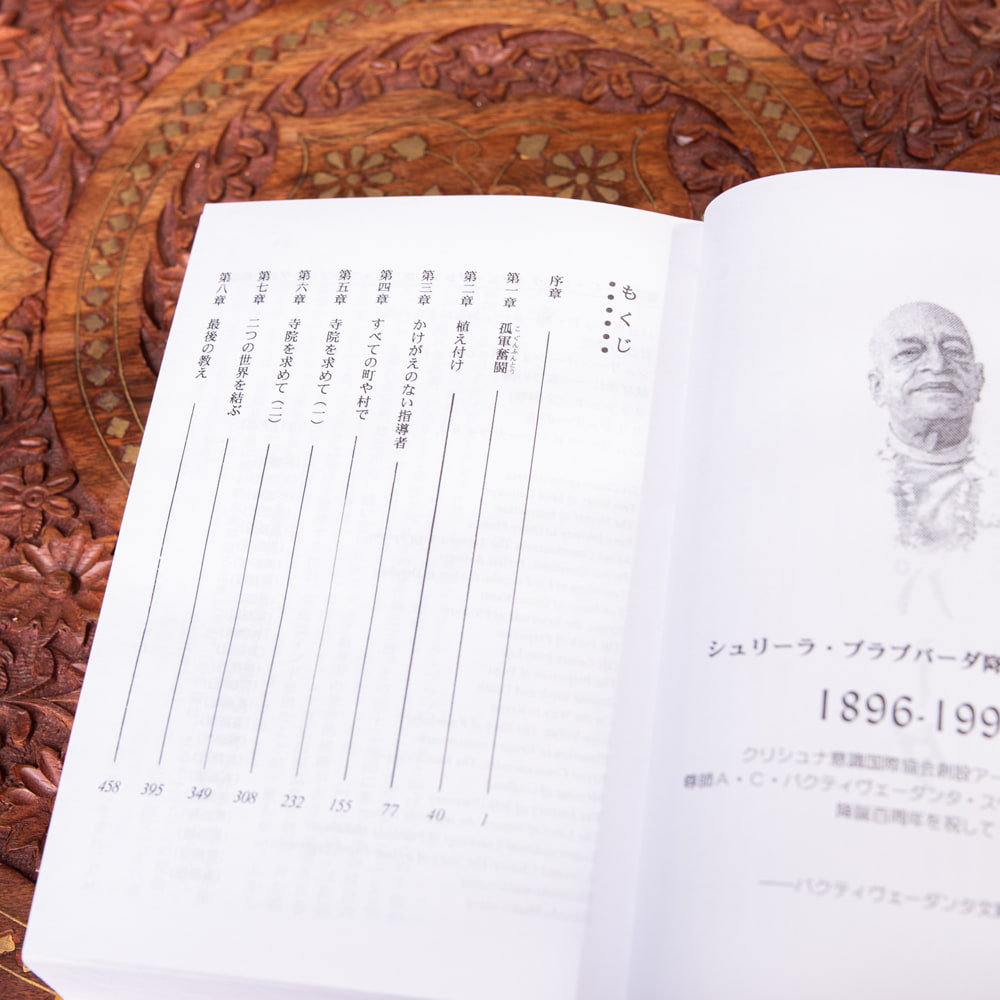 シュリーラ・プラブパーダ降
1896-199
クリシュナ意識国際協会創設アー
尊師A・C・バクティヴェーダンタ・ス
降誕百周年を祝して
――バクティヴェーダンタ文
もくじ
序章 1
第一章 孤軍奮闘 こぐんふんとう 40
第二章 植え付け 77
第三章 かけがえのない指導者 155
第四章 すべての町や村で 232
第五章 寺院を求めて（一） 308
第六章 寺院を求めて（二） 349
第七章 二つの世界を結ぶ 395
第八章 最後の教え 458